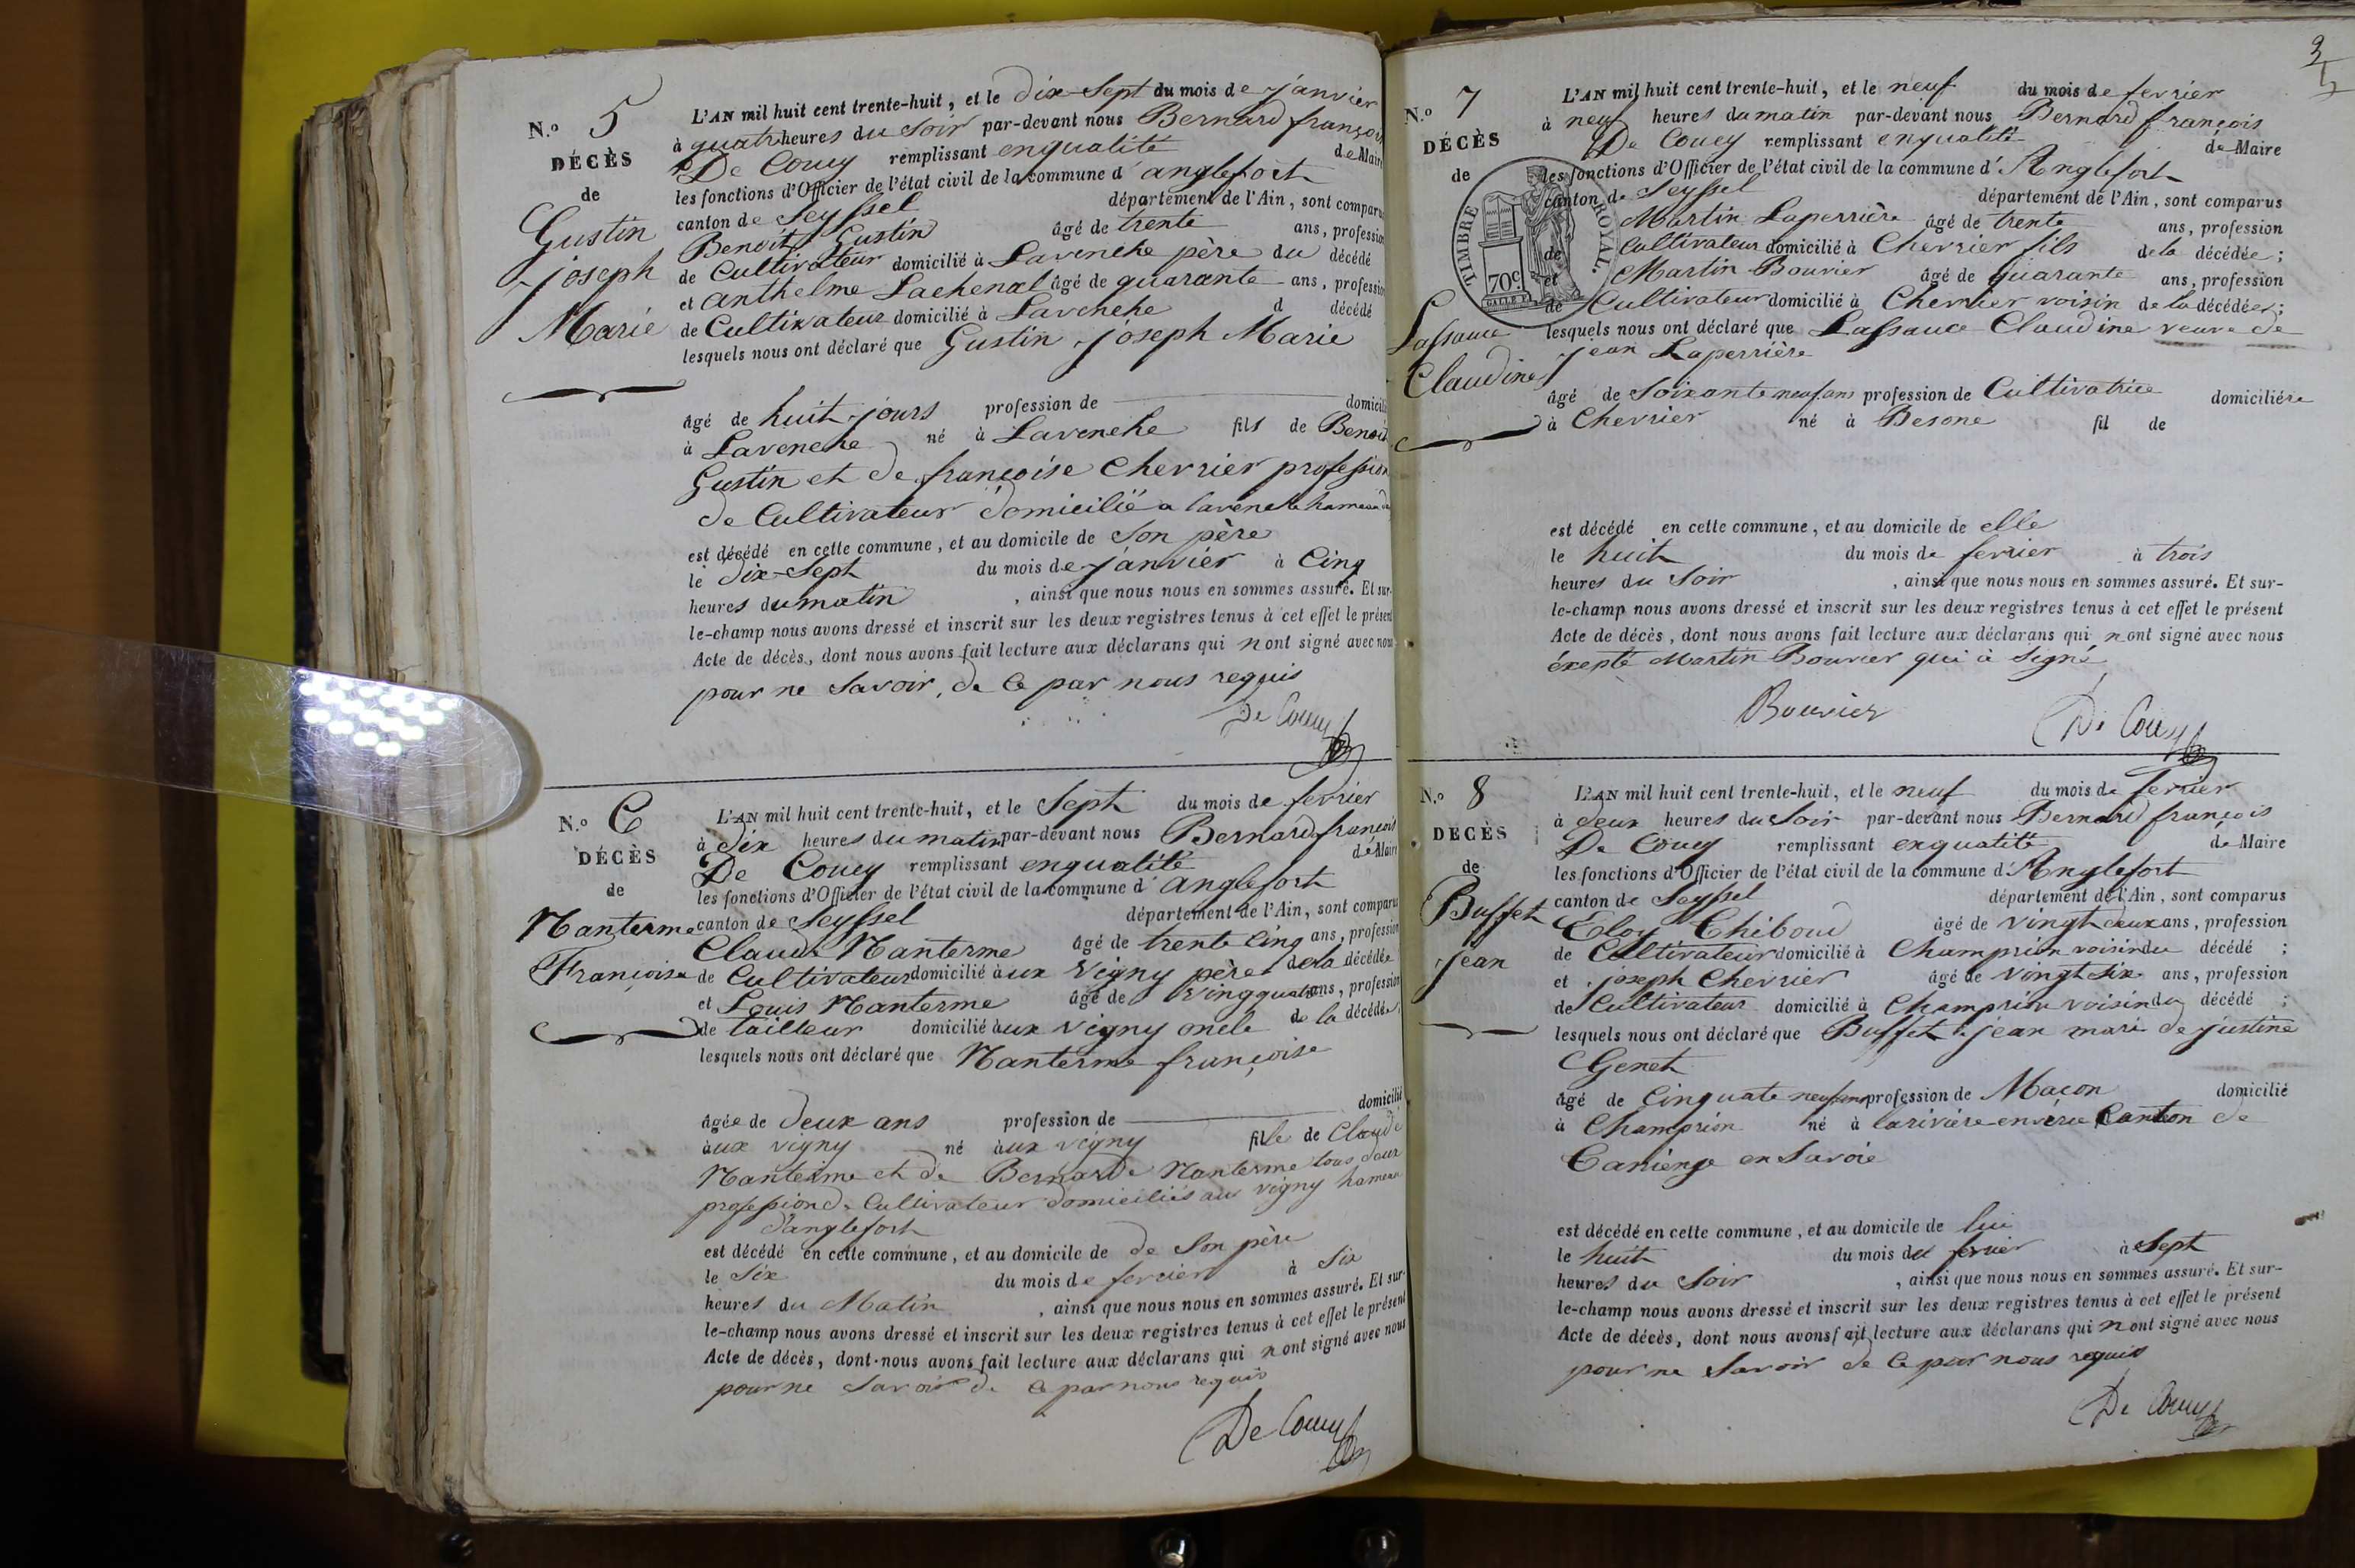 N.o 5
DÉCÈS
de
Gustin
joseph
Marie
L'AN mil huit cent trente-huit, et le dix-Sept du mois de janvier
à quatre heures du Soir par-devant nous Bernard françois
De Coucy remplissant enqualité de Maire
les fonctions d'Officier de l'état civil de la commune d'anglefort
canton de Seyssel département de l'Ain, sont comparus
Benoit Gustin âgé de trente ans, profession
de Cultivateur domicilié à Lavenche père du décédé
et anthelme Lachenal âgé de quarante ans, profession
de Cultivateur domicilié à Lavenche d décédé
lesquels nous ont déclaré que Gustin joseph Marie
âgé de huit jours profession de domicilié
à Lavenche né à Lavenche fils de Benoit
Gustin et de françoise Chevrier profession
de Cultivateur domicilié a lavenche hameau
est décédé en cette commune, et au domicile de Son père
le dix-Sept du mois de janvier à Cinq
heures du matin, ainsi que nous nous en sommes assuré. Et sur-
le-champ nous avons dressé et inscrit sur les deux registres tenus à cet effet le présent
Acte de décès, dont nous avons fait lecture aux déclarans qui nont signé avec nous
pour ne Savoir, de Ce par nous requis
De Coucy
N.o 6
DÉCÈS
de
Nanterme
Françoise
L'AN mil huit cent trente-huit, et le Sept du mois de fevrier
à dix heures du matin par-devant nous Bernard françois
De Coucy remplissant enqualité de Maire
les fonctions d'Officier de l'état civil de la commune d'anglefort
canton de Seyssel département de l'Ain, sont comparus
Claude Nanterme âgé de trente Cinq ans, profession
de Cultivateur domicilié àux Vigny père de la décédée
et Louis Nanterme âgé de Vingquatre ans, profession
de tailleur domicilié àux Vigny oncle de la décédée,
lesquels nous ont déclaré que Nanterme françoise
âgée de deux ans profession de domicilié
àux vigny né àux vigny fille de Claude
Nanterme et de Bernarde Nanterme tous deux
profession de Cultivateur domiciliés aux vigny hameau
d'anglefort
est décédé en cette commune, et au domicile de de Son père
le Six du mois de fevrier à Six
heures du Matin, ainsi que nous nous en sommes assuré. Et sur-
le-champ nous avons dressé et inscrit sur les deux registres tenus à cet effet le présent
Acte de décès, dont nous avons fait lecture aux déclarans qui nont signé avec nous
pour ne Savoir de Ce par nous requis
De Coucy
N.o 7
DÉCÈS
de
TIMBRE ROYAL.
70c
Lassauce
Claudine
L'AN mil huit cent trente-huit, et le neuf du mois de fevrier
à neuf heures du matin par-devant nous Bernard françois
De Coucy remplissant enqualité de Maire
les fonctions d'Officier de l'état civil de la commune d'Anglefort
canton de Seyssel département de l'Ain, sont comparus
Martin Laperrière âgé de trente ans, profession
de Cultivateur domicilié à Chevrier fils de la décédée;
et Martin Bouvier âgé de quarante ans, profession
de Cultivateur domicilié à Chevrier voisin de la décédée;
lesquels nous ont déclaré que Lassauce Claudine veuve de
jean Laperrière
âgé de Soixante neuf ans profession de Cultivatrice domiciliére
à Chevrier né à Besone fil de
est décédé en cette commune, et au domicile de elle
le huit du mois de fevrier à trois
heures du Soir, ainsi que nous nous en sommes assuré. Et sur-
le-champ nous avons dressé et inscrit sur les deux registres tenus à cet effet le présent
Acte de décès, dont nous avons fait lecture aux déclarans qui nont signé avec nous
éxepté Martin Bouvier qui à Signé
Bouvier De Coucy
N.o 8
DÉCÈS
de
Buffet
jean
L'AN mil huit cent trente-huit, et le neuf du mois de Fevrier
à deux heures du Soir par-devant nous Bernard françois
De Coucy remplissant enqualité de Maire
les fonctions d'Officier de l'état civil de la commune d'Anglefort
canton de Seyssel département de l'Ain, sont comparus
Eloy Chiboud âgé de Vingt deux ans, profession
de Cultivateur domicilié à Champrion voisin du décédé;
et joseph Chevrier âgé de Vingt Six ans, profession
de Cultivateur domicilié à Champrion voisin du décédé;
lesquels nous ont déclaré que Buffet jean mari de justine
Genet
âgé de Cinquate neuf ans profession de Maçon domicilié
à Champrion né à larivière enverse Canton de
Tanienge en Savoie
est décédé en cette commune, et au domicile de lui
le huit du mois de fevrier à Sept
heures du Soir, ainsi que nous nous en sommes assuré. Et sur-
le-champ nous avons dressé et inscrit sur les deux registres tenus à cet effet le présent
Acte de décès, dont nous avons fait lecture aux déclarans qui nont signé avec nous
pour ne Savoir de Ce par nous requis
De Coucy